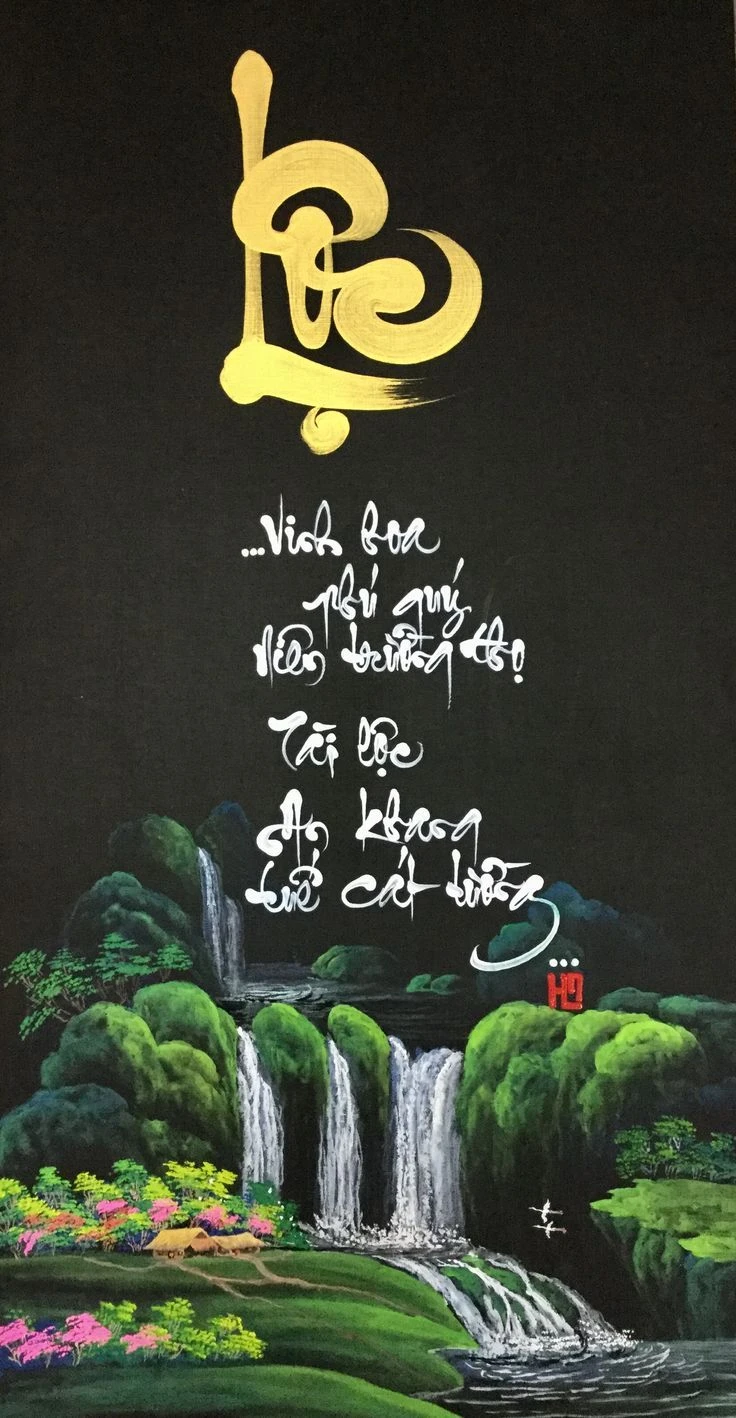 Lộc
...Vinh hoa
phú quý
Niên trường thọ
Tài lộc
An khang
tuế cát tường
...
HD